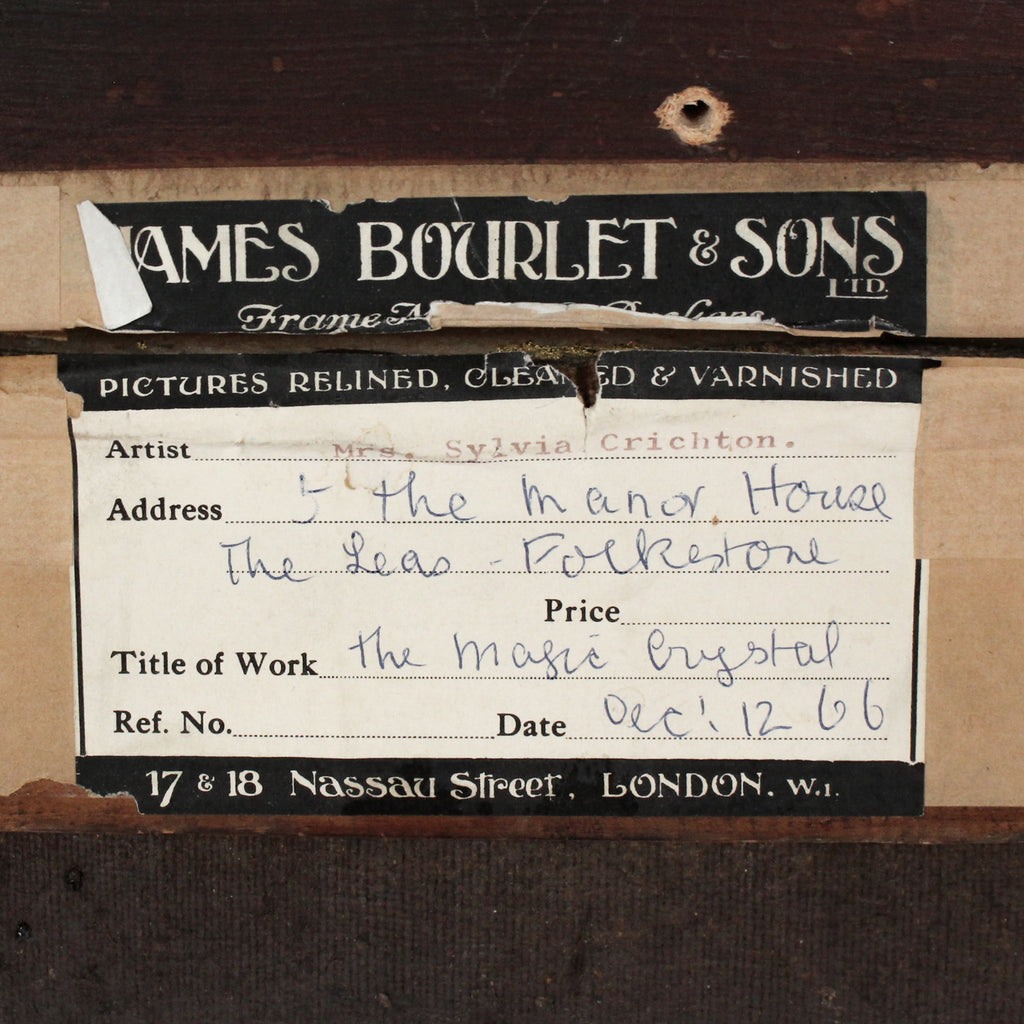 JAMES BOURLET & SONS
LTD.
Frame
PICTURES RELINED, CLEANED & VARNISHED
Artist Mrs. Sylvia Crichton.
Address 5 the Manor House
The Leas - Folkestone
Price
Title of Work the Magic Crystal
Ref. No. Date Dec! 12 66
17 & 18 Nassau Street, LONDON. W.1.